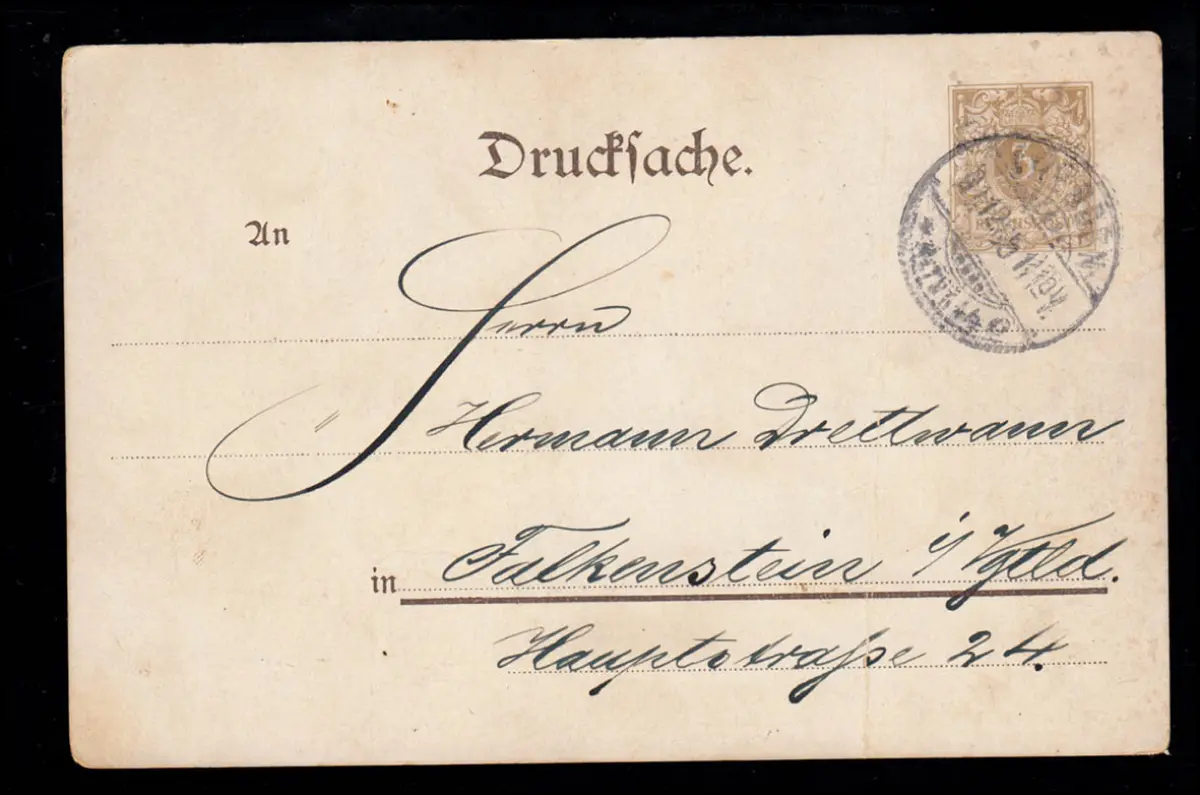 Drucksache.
3
An
Herrn
Hermann Drettwann
in Falkenstein i/Vgtld.
Hauptstraße 24.